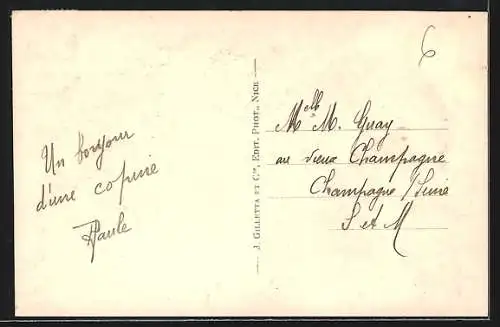 Un bonjour
d'une copine
Paule
J. GILLETTA ET Cie, EDIT. PHOT., NICE
6
Melle M. Guay
au vieux Champagne
Champagne / Seine
S et M